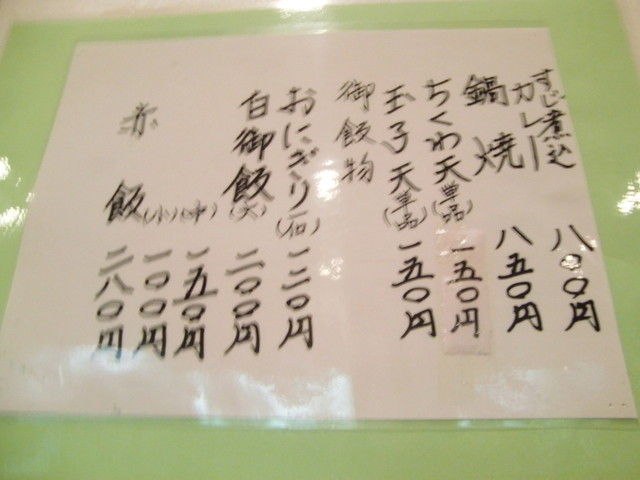 すじ煮込
カレー 八〇〇円
鍋焼 八五〇円
ちくわ天(単品) 一五〇円
玉子天(単品) 一五〇円
御飯物
おにぎり 一二〇円
白御飯(大) 二〇〇円
(中) 一五〇円
(小) 一〇〇円
赤飯 二八〇円